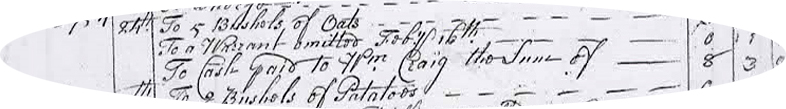 24th To 5 Bushels of Oats
To a Warrant omitted Feby 16th 0 1
To Cash paid to Wm Craig the Sum of 8 3
th To 2 Bushels of Patatoes